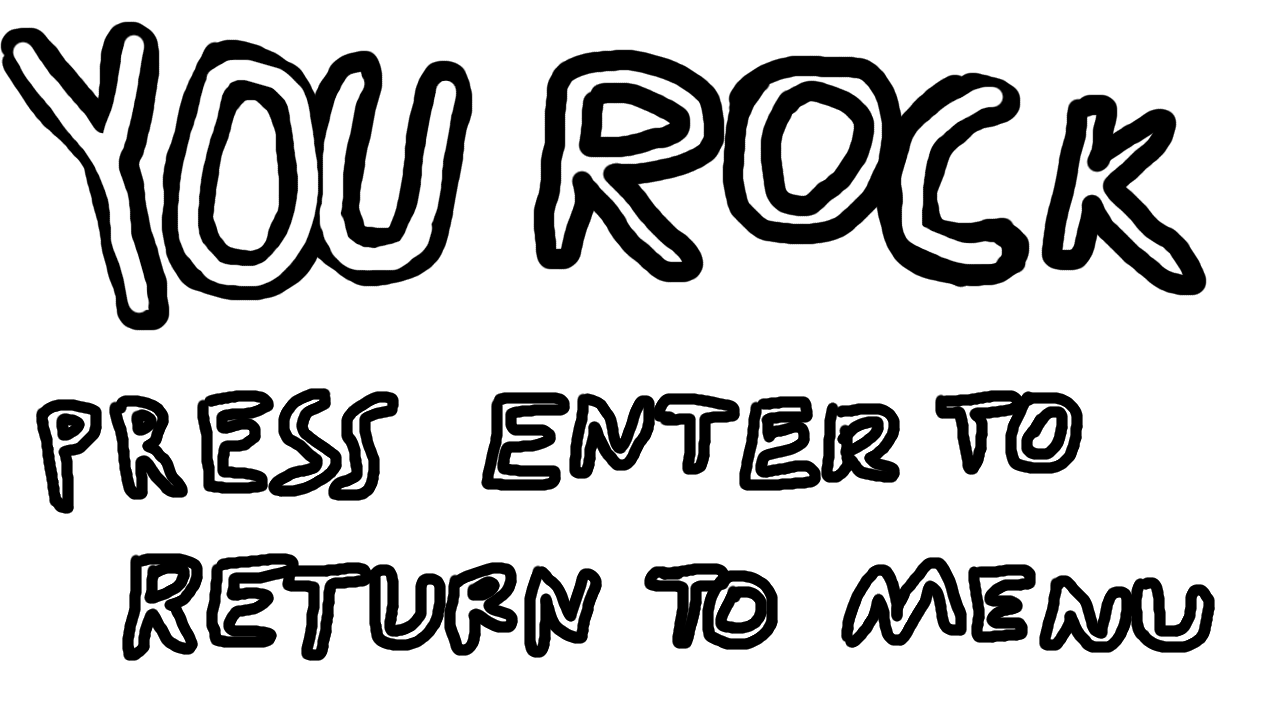 YOU ROCK
PRESS ENTER TO
RETURN TO MENU